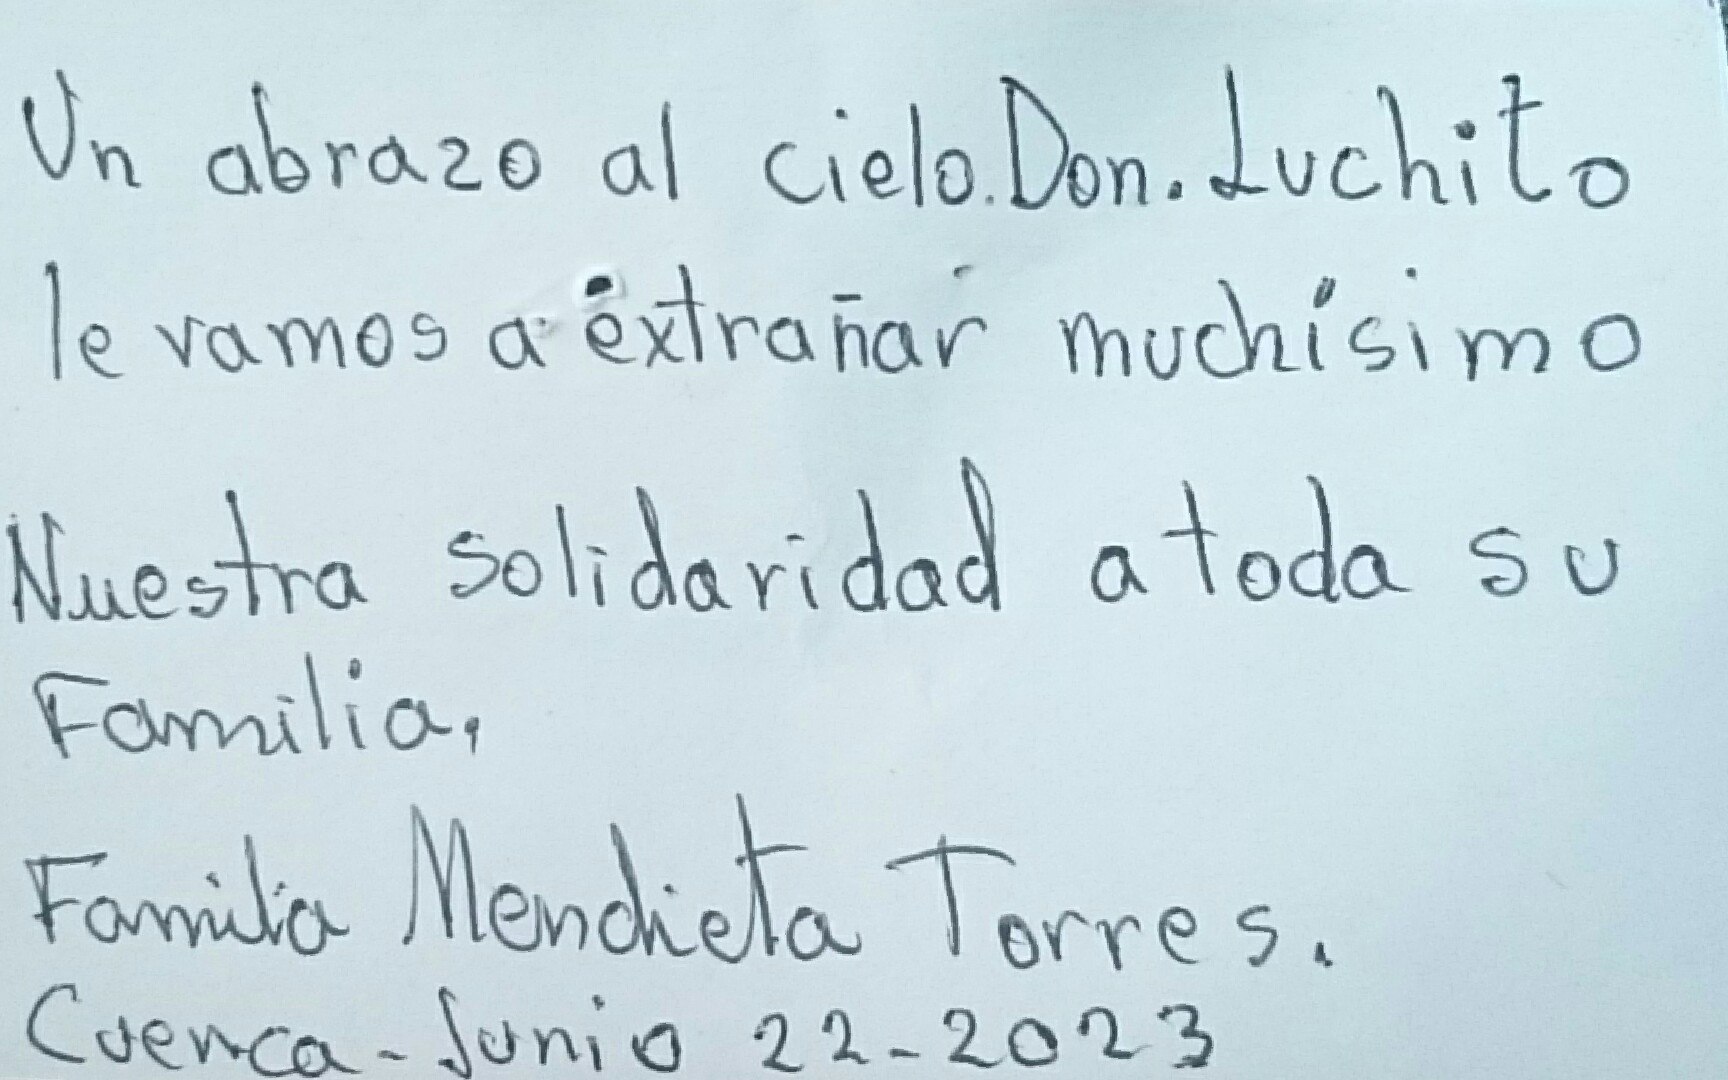 Un abrazo al cielo. Don. Luchito
le vamos a extrañar muchísimo
Nuestra solidaridad a toda su
Familia,
Familia Mendieta Torres.
Cuenca - Junio 22-2023